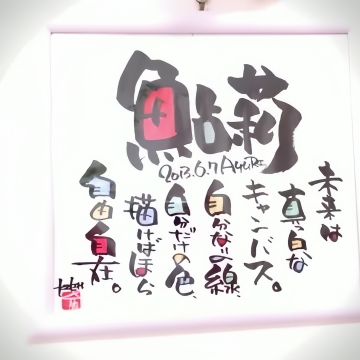 鮎莉
2013.6.7 AyuRi
未来は
真っ白な
キャンバス。
自分ないの線、
自分だけの色、
描けばほら
自由自在。